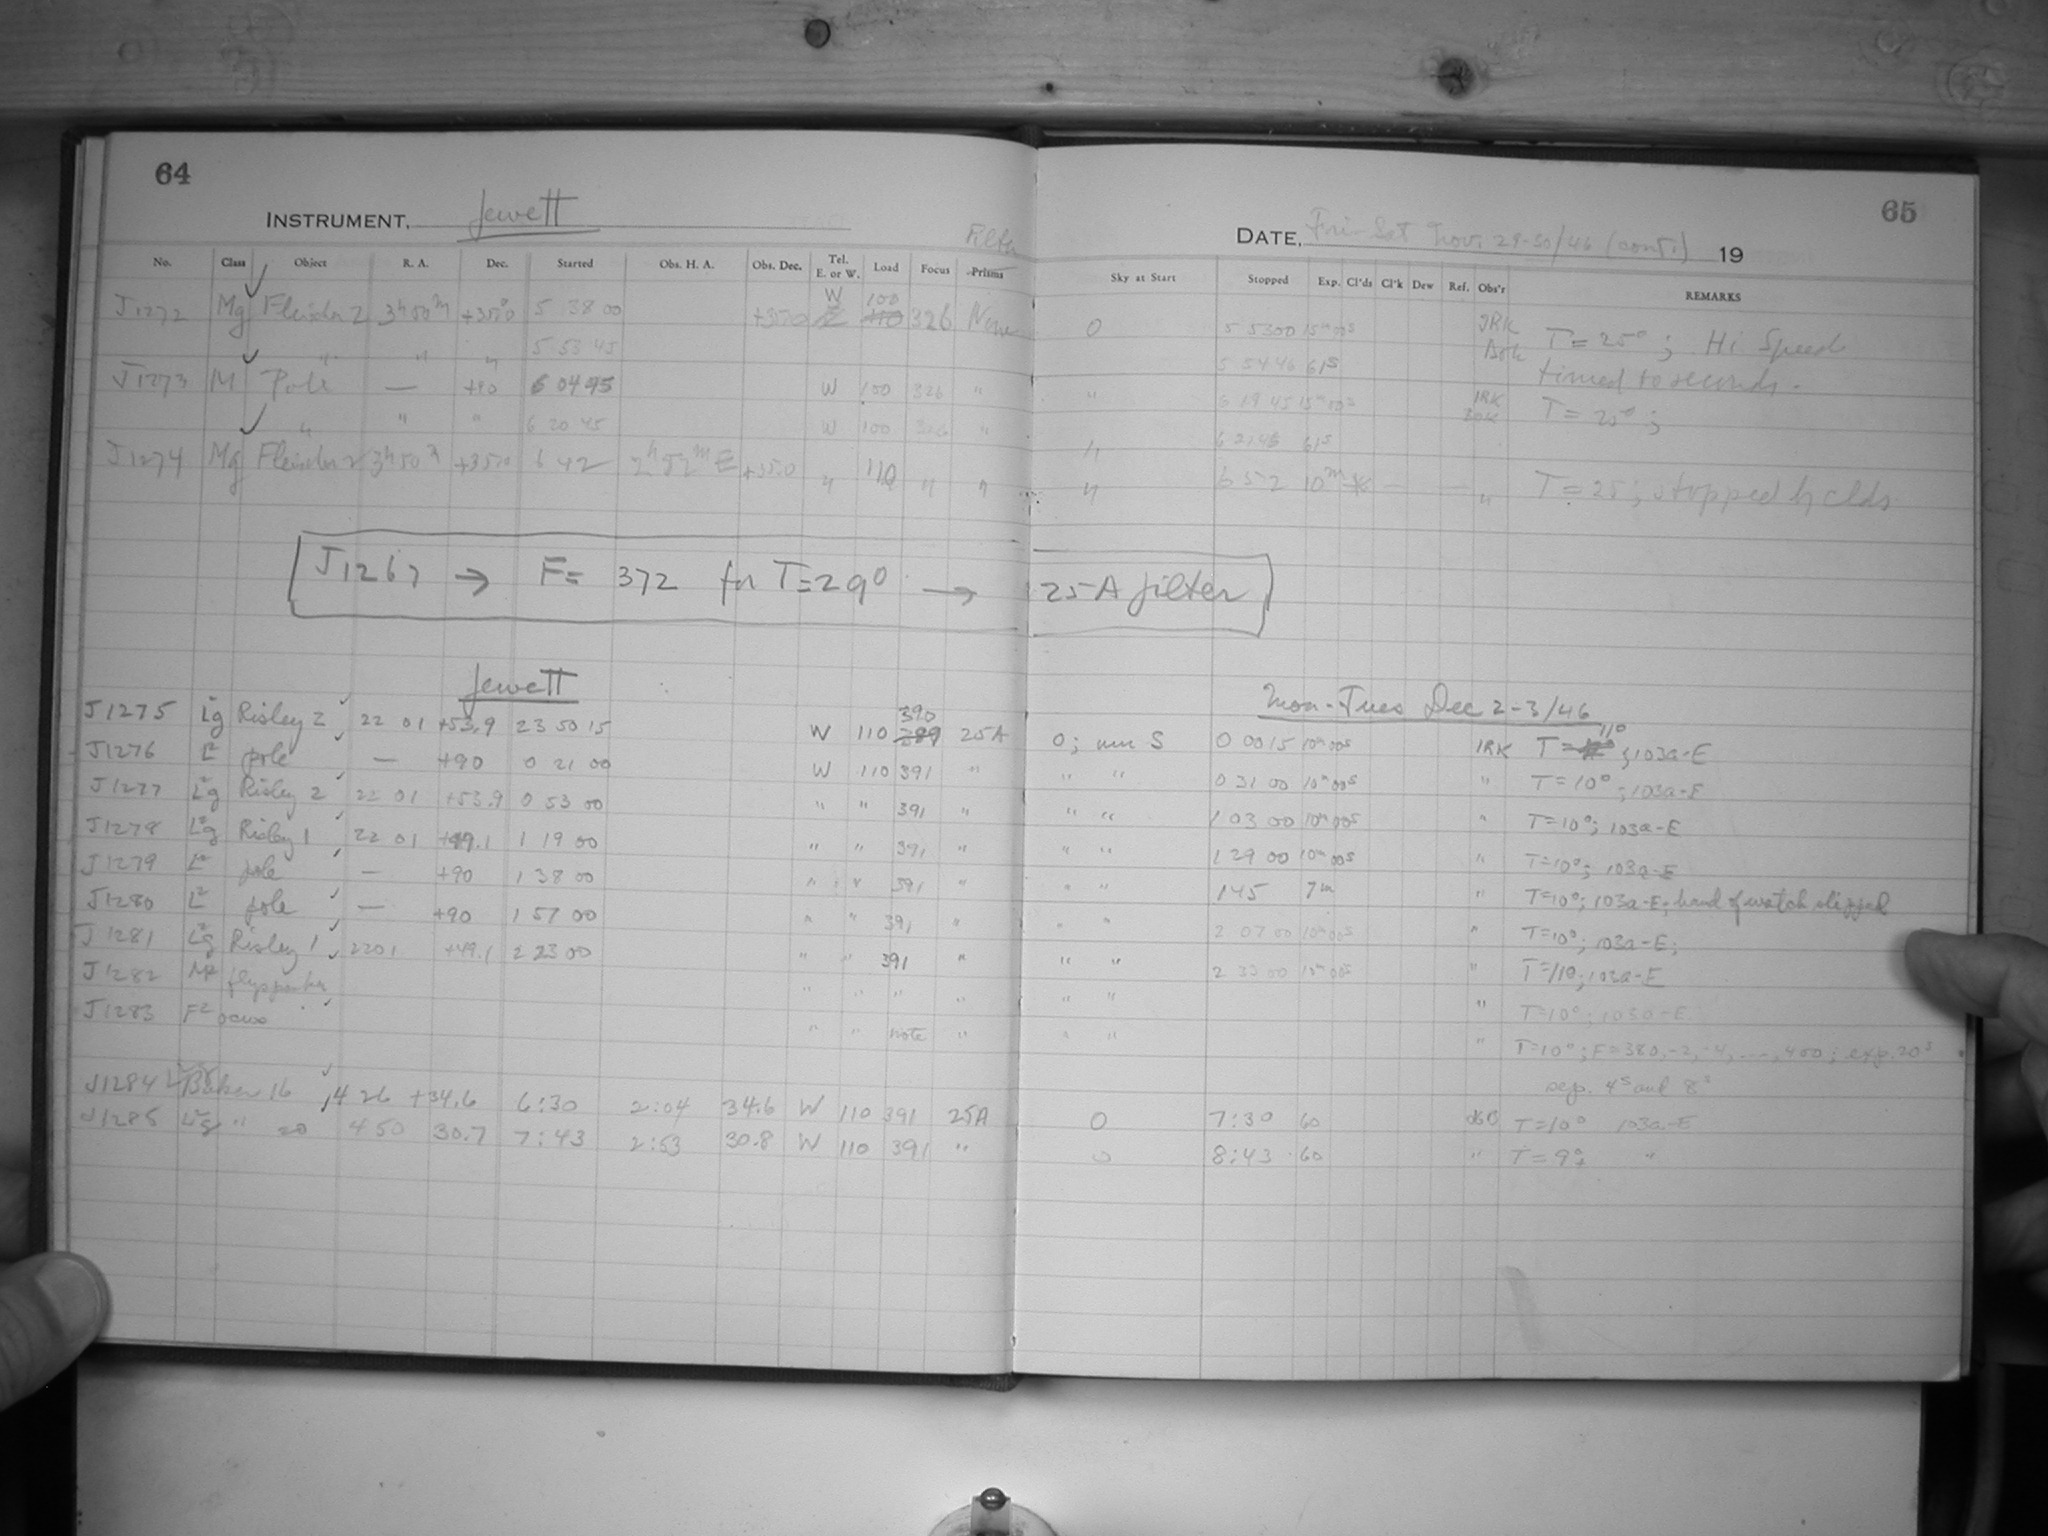 64
65
INSTRUMENT, Jewett
DATE, Fri-Sat Nov. 29-30/46 (cont.) 19
Filter
No. Class Object R. A. Dec. Started Obs. H. A. Obs. Dec. Tel. E. or W. Load Focus Prisms Sky at Start Stopped Exp. Cl'ds Cl'k Dew Ref. Obs'r REMARKS
J1272 Mg 2 3h50m +35.0 5 38 00 +35.0 W 100 326 None 0 5 53 00 15m00s IRK T=25°; Hi Speed
" " " 5 53 45 5 54 46 61s timed to seconds.
J1273 M Pole — +90 6 04 45 W 100 326 " " 6 19 45 15m00s IRK T=20°;
" " " 6 20 45 W 100 326 " " 6 21 46 61s
J1274 Mg 2 3h50m +35.0 6 42 2h52mE +35.0 " 110 " " " 6 52 10m — — " T=25; stopped by clds
J1267 → F= 372 for T=29° → 25A filter
Jewett
Mon-Tues Dec 2-3/46
J1275 L²g Risley 2 22 01 +53.9 23 50 15 W 110 390 25A 0; S 0 00 15 10m00s IRK T= 11°; 103a-E
J1276 L² pole — +90 0 21 00 W 110 391 " " " 0 31 00 10m00s " T=10°; 103a-E
J1277 L²g Risley 2 22 01 +53.9 0 53 00 " " 391 " " " 1 03 00 10m00s " T=10°; 103a-E
J1278 L²g Risley 1 22 01 +49.1 1 19 00 " " 391 " " " 1 29 00 10m00s " T=10°; 103a-E
J1279 L² pole — +90 1 38 00 " " 391 " " " 1 45 7m " T=10°; 103a-E; hand of watch slipped
J1280 L² pole — +90 1 57 00 " " 391 " " " 2 07 00 10m00s " T=10°; 103a-E;
J1281 L²g Risley 1 22 01 +49.1 2 23 00 " " 391 " " " 2 33 00 10m00s " T=10; 103a-E
J1282 flyspanker " " " " " " " T=10°; 103a-E
J1283 F² ocus " " note " " " " T=10°; F=380,-2,-4,....,400; exp. 20s
sep. 4s and 8s
J1284 Baker 16 4 26 +34.6 6:30 2:04 34.6 W 110 391 25A 0 7:30 60 T=10° 103a-E
J1285 " 20 4 50 30.7 7:43 2:53 30.8 W 110 391 " 0 8:43 60 " T=9°; "